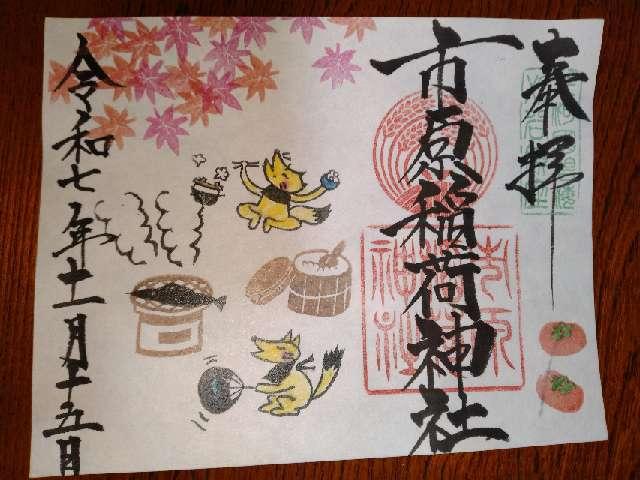 奉拝
市原稲荷神社
令和七年十一月十五日